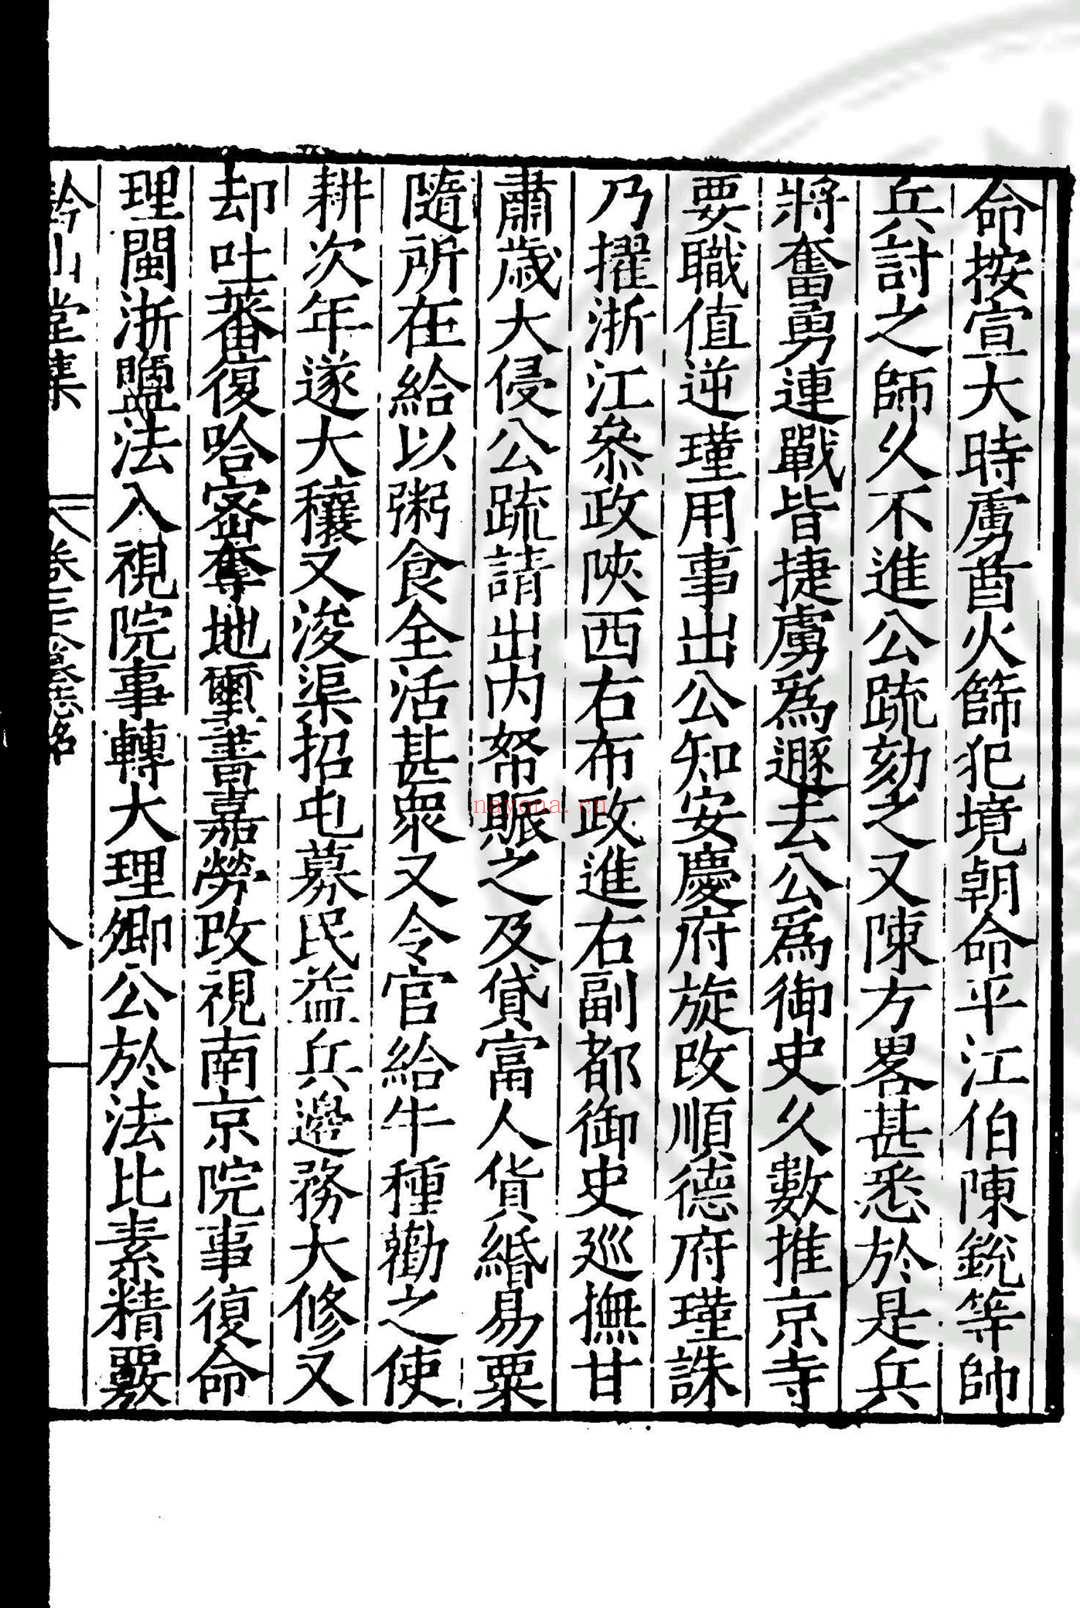 命按宣大時虜酋火篩犯境朝命平江伯陳銳等帥
兵討之師久不進公疏劾之又陳方畧甚悉於是兵
將奮勇連戰皆捷虜爲遯去公爲御史久數推京寺
要職值逆瑾用事出公知安慶府旋改順德府瑾誅
乃擢浙江叅政陝西右布政進右副都御史廵撫甘
肅歲大侵公疏請出内帑賑之及貸富人貨緡易粟
隨所在給以粥食全活甚衆又令官給牛種勸之使
耕次年遂大穰又浚渠招屯募民益兵邊務大修又
却吐蕃復哈密奪地璽書嘉勞改視南京院事復命
理閩浙鹽法入視院事轉大理卿公於法比素精覈
鈐山堂集
卷三 墓誌銘
八
nayona.cn